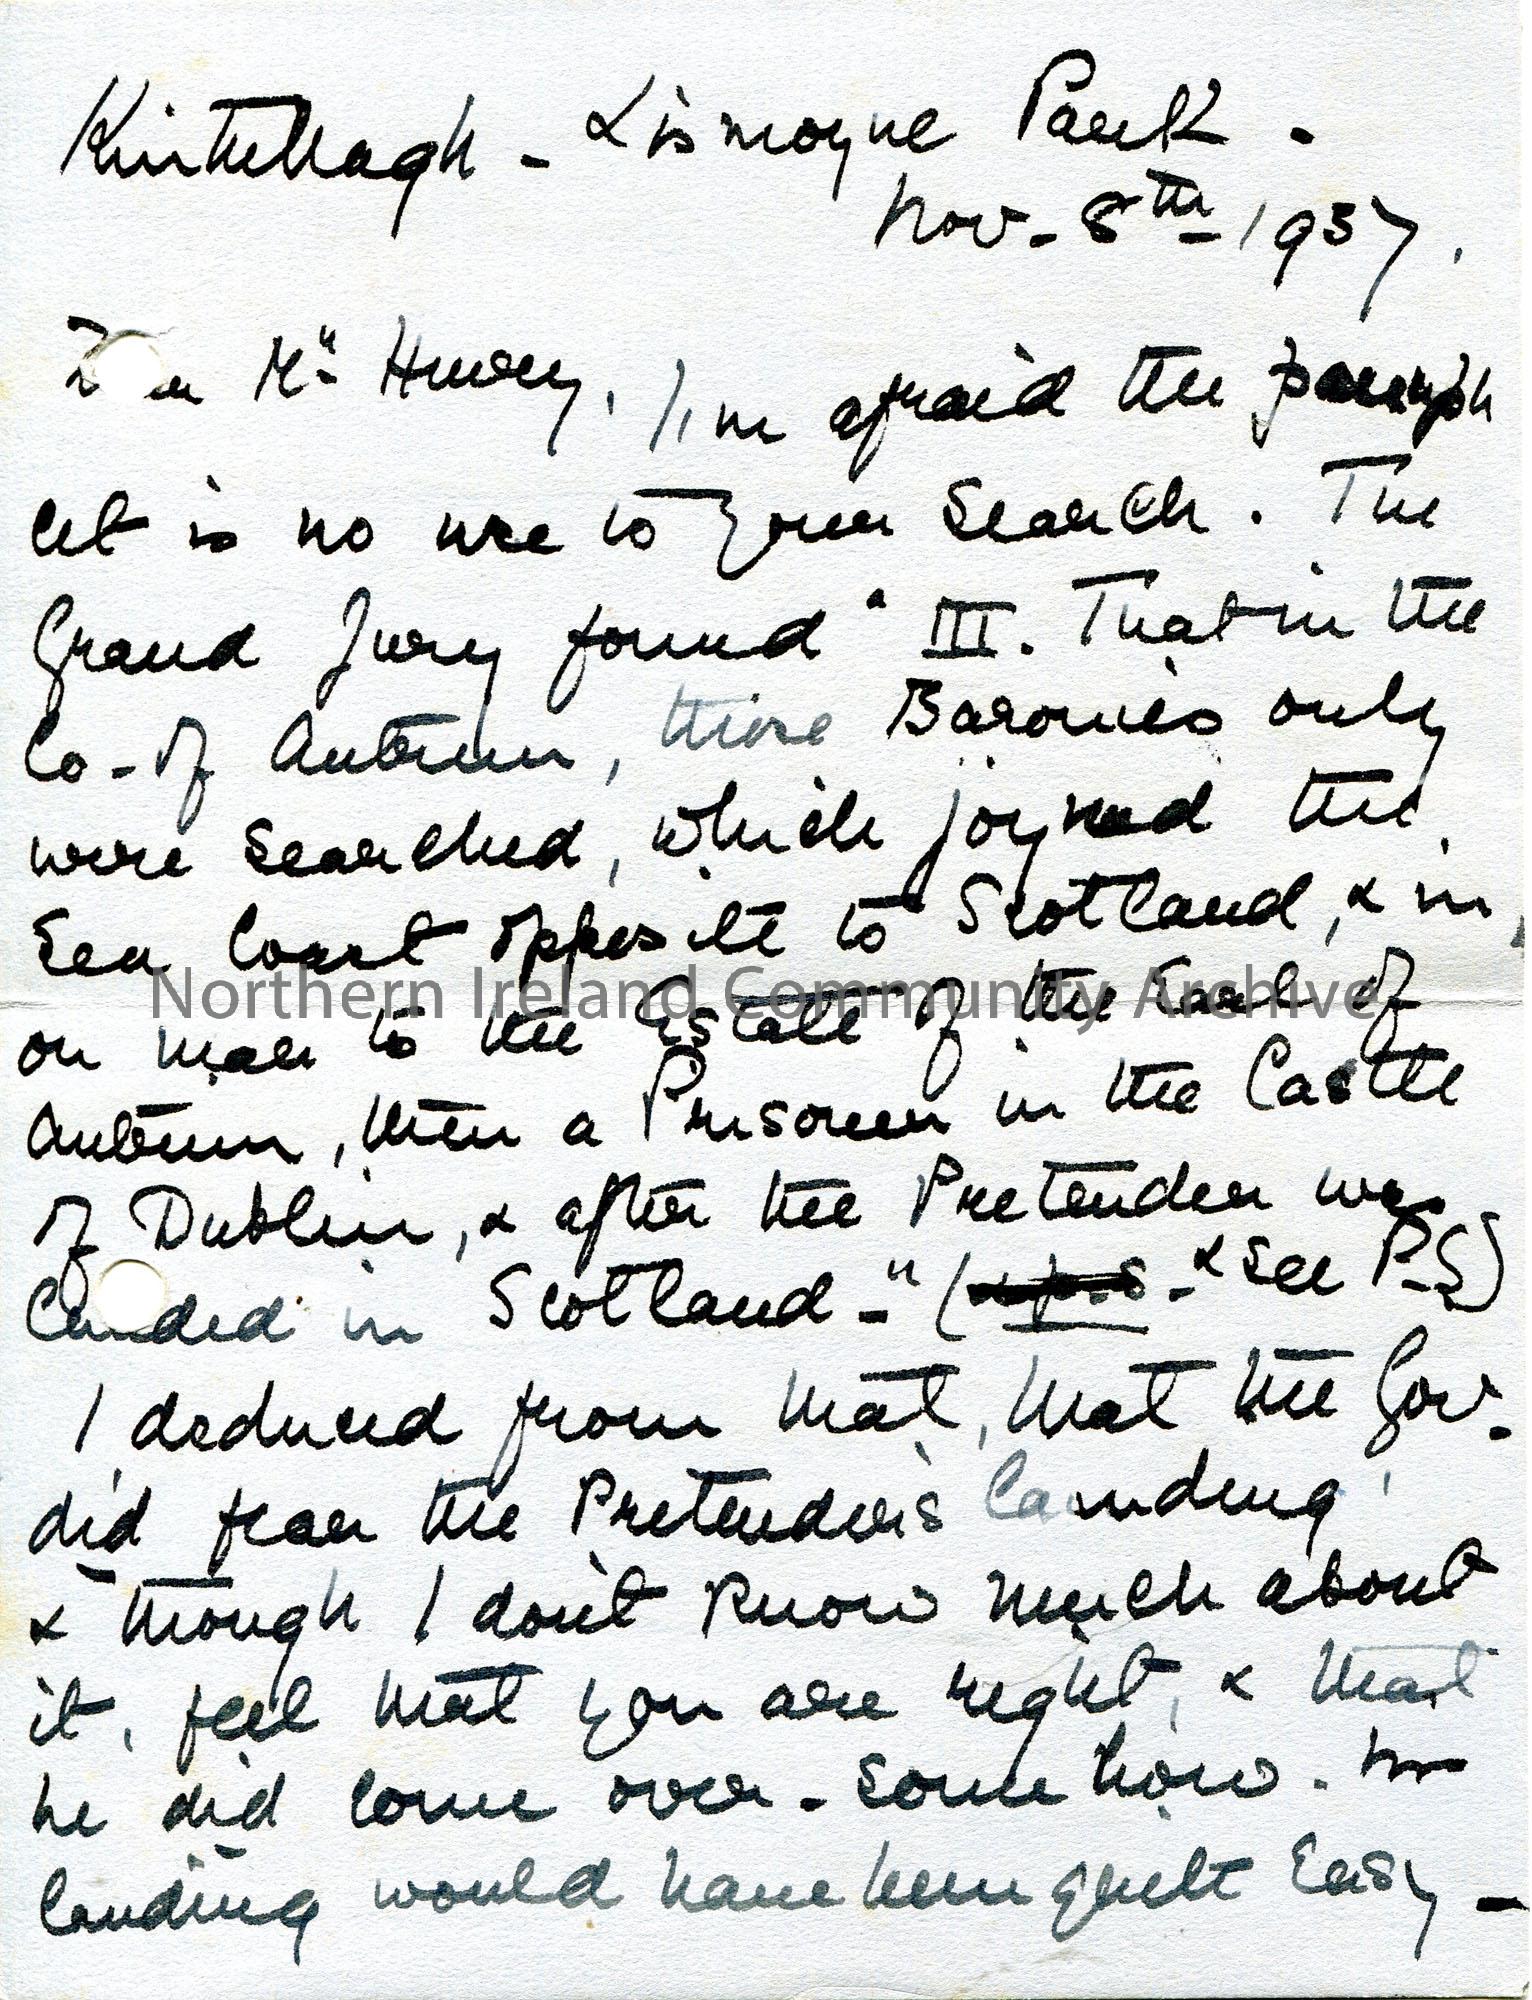 Kintullagh - Lismoyne Park -
Nov. 8th 1957.
Dear Mr Henry, I'm afraid the pamph
let is no use to your search. The
Grand Jury found "III. That in the
Co. of Antrim, those Baronies only
were searched, which joyned the
Sea Coast opposite to Scotland, & in
or near to the Estate of the Earl of
Antrim, then a Prisoner in the Castle
of Dublin, & after the Pretender was
landed in Scotland." ( & see P.S)
I deduced from that, that the Gov.
did fear the Pretender's landing,
& though I don't know much about
it, feel that you are right, & that
he did come over - somehow.
landing would have been quite easy -
Northern Ireland Community Archive